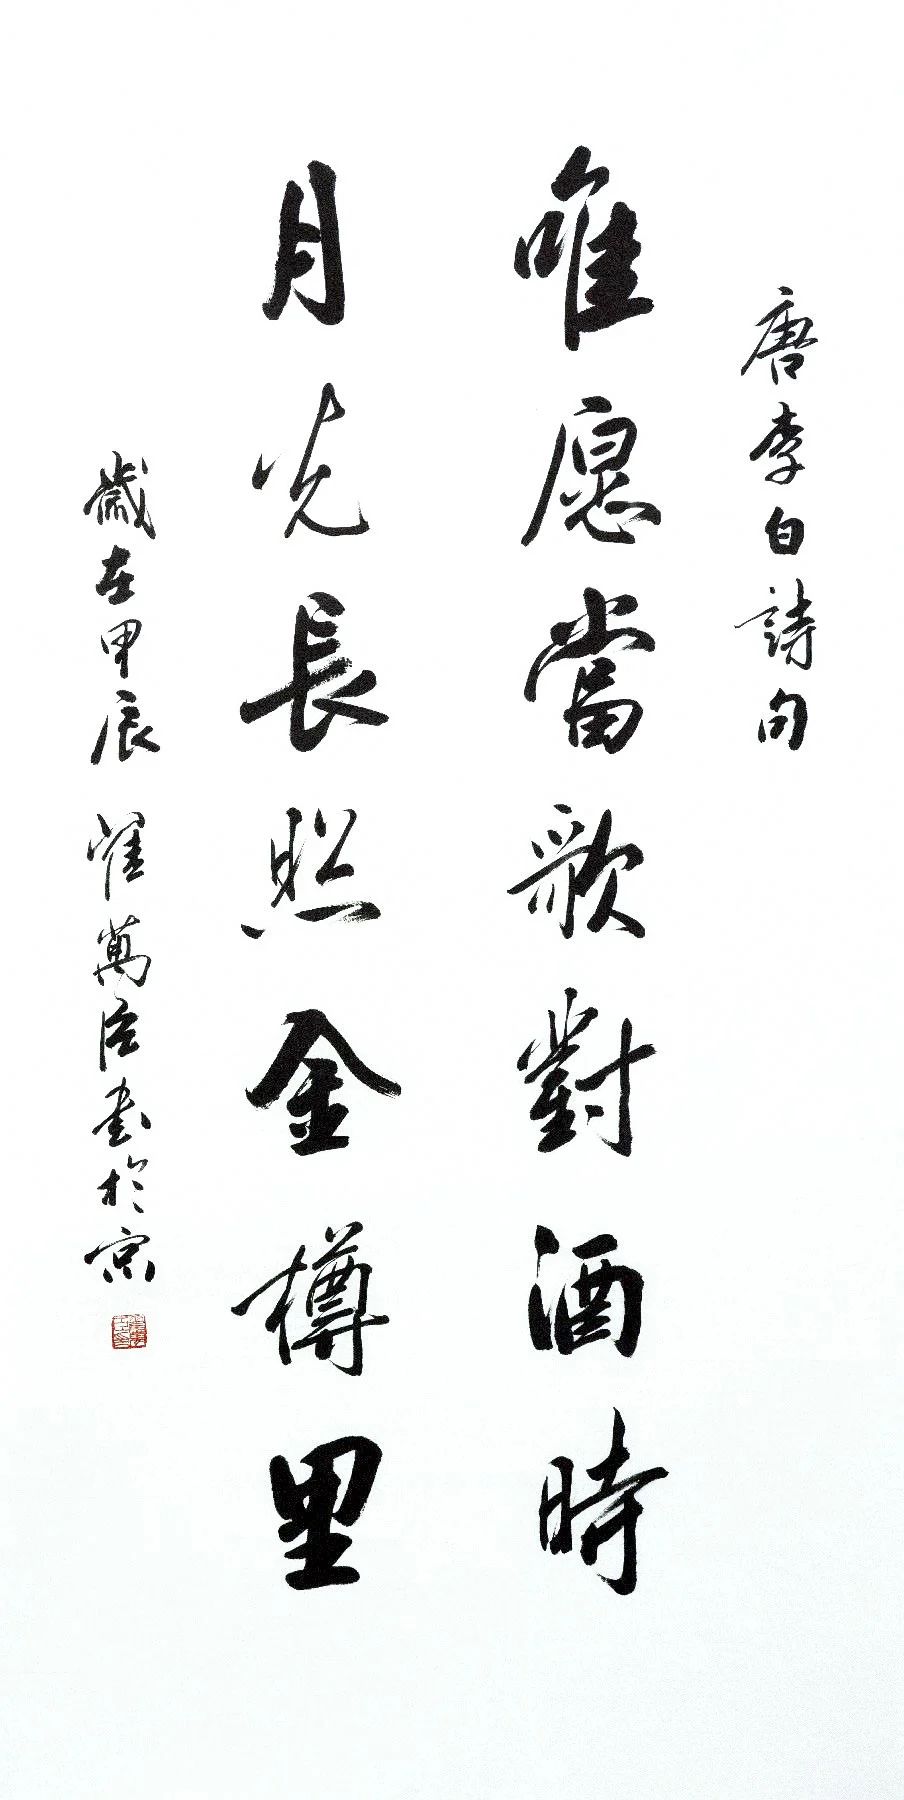 唐李白詩句
唯愿當歌對酒時
月光長照金樽里
歲在甲辰 翟萬臣書於京